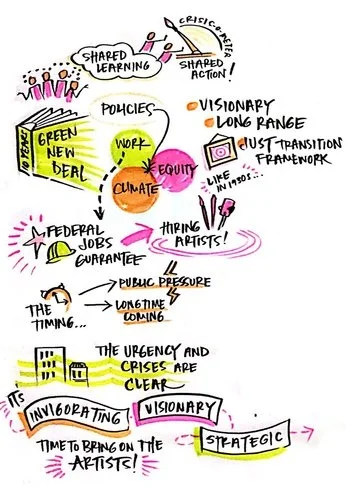 CRISIC-O-METER
SHARED
LEARNING
SHARED
ACTION!
POLICIES
• VISIONARY
• LONG RANGE
• JUST-TRANSITION
FRAMEWORK
10 YEAR!
GREEN
NEW
DEAL
WORK
EQUITY
CLIMATE
LIKE
IN 1930s...
FEDERAL
JOBS
GUARANTEE
HIRING
ARTISTS!
THE
TIMING...
PUBLIC PRESSURE
LONGTIME
COMING
THE URGENCY AND
CRISES ARE
CLEAR
ITS
INVIGORATING
VISIONARY
STRATEGIC
TIME TO BRING ON THE
ARTISTS!